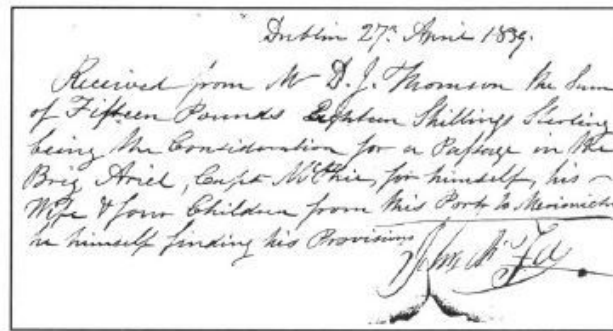 Dublin 27th April 1839.
Received from Mr D. J. Thomson the Sum
of Fifteen Pounds Eighteen Shillings Sterling
being the Consideration for a Passage in the
Brig Ariel, Capt McPhie, for himself, his
Wife & four Children from this Port to
he himself finding his Provisions
John